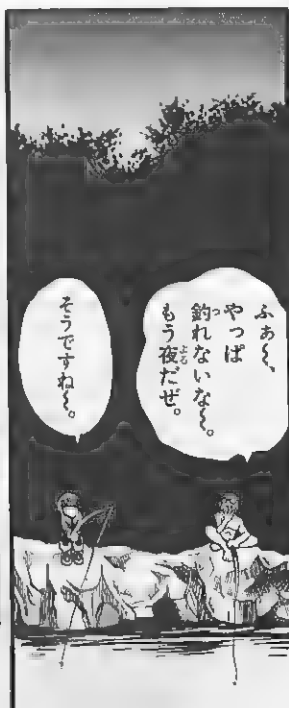 ふぁ〜、
やっぱ
釣れないな〜。
もう夜だぜ。
そうですね〜。